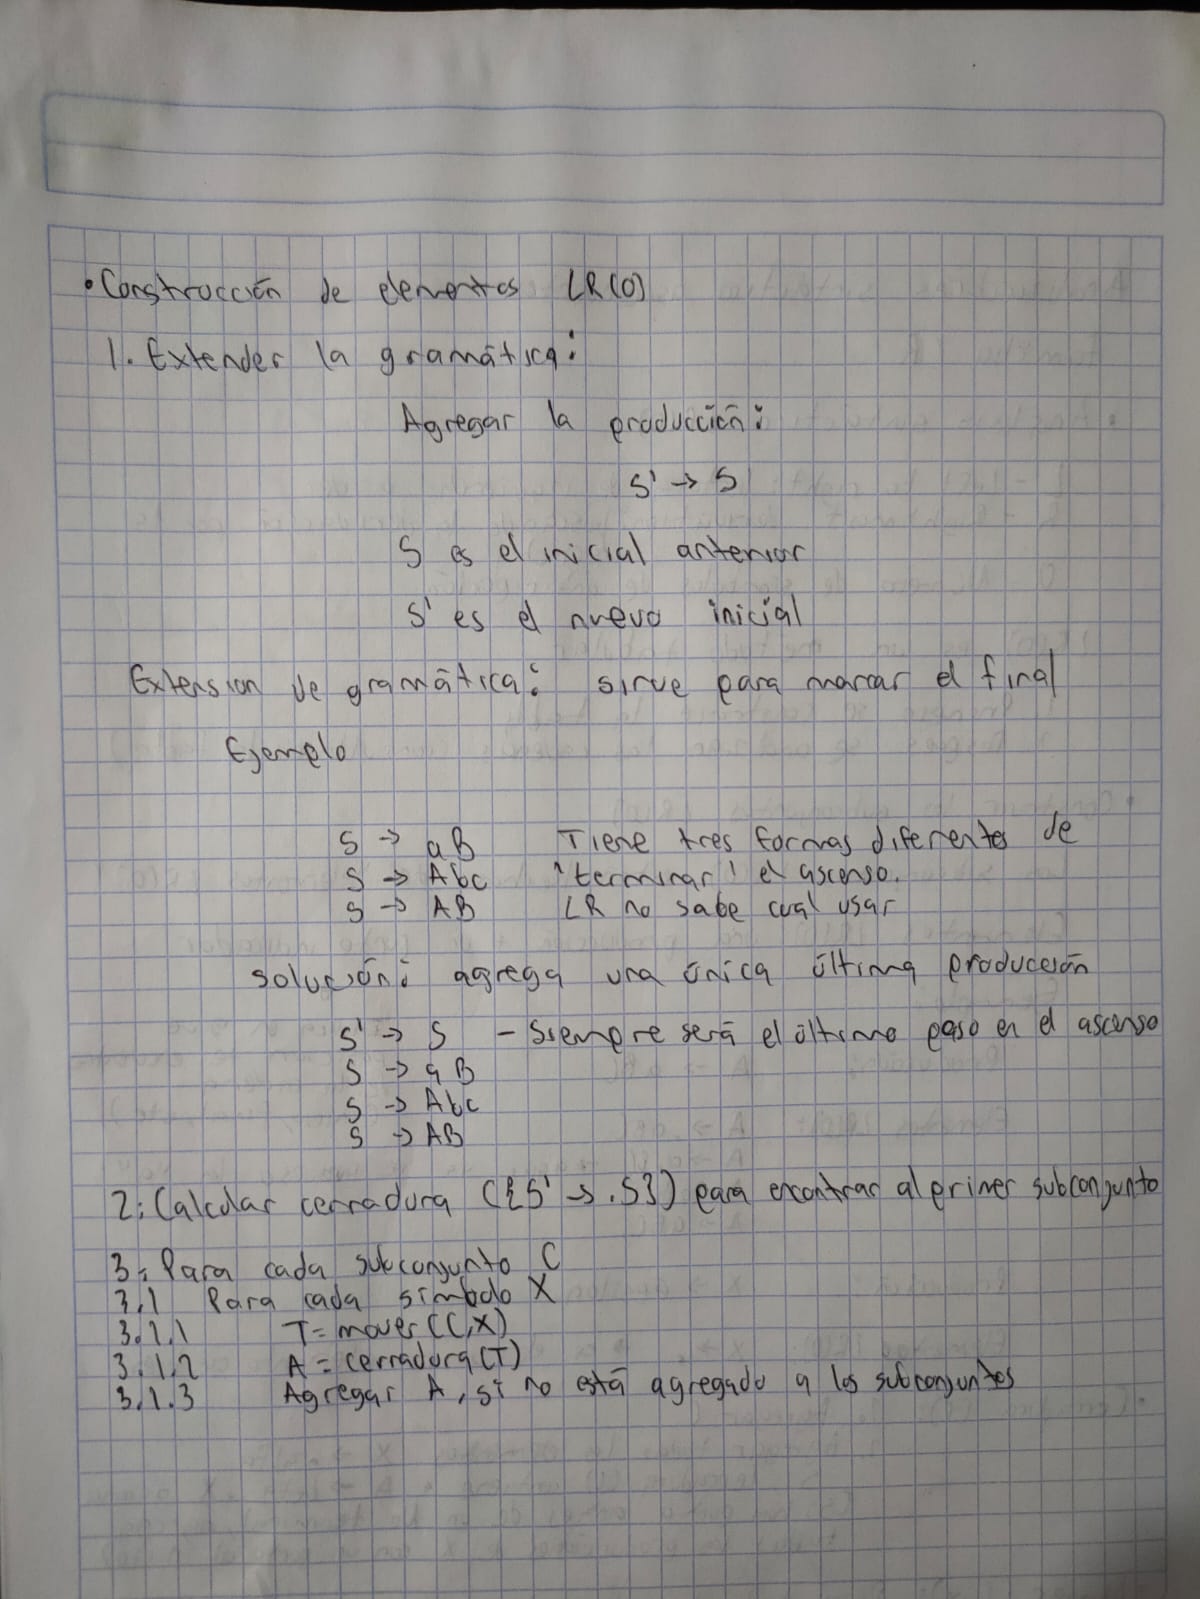 • Construcción de elementos LR(0)
1. Extender la gramática:
Agregar la producción:
S' → S
S es el inicial anterior
S' es el nuevo inicial
Extension de gramática: sirve para marcar el final
Ejemplo
S → aB Tiene tres formas diferentes de
S → Abc 'terminar' el ascenso.
S → AB LR no sabe cual usar
solución: agrega una única última producción
S' → S - Siempre será el último paso en el ascenso
S → aB
S → Abc
S → AB
2: Calcular cerradura ({S' → .S}) para encontrar al primer subconjunto
3: Para cada subconjunto C
3.1 Para cada símbolo X
3.1.1 T = mover(C,X)
3.1.2 A = cerradura(T)
3.1.3 Agregar A, si no está agregado a los subconjuntos